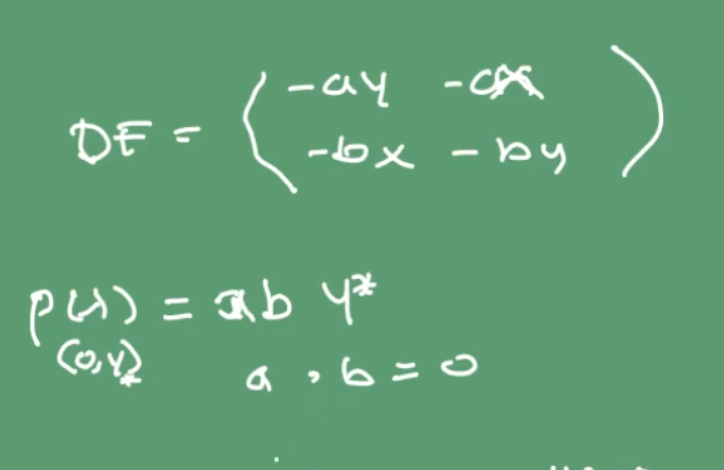 DF = ( -ay -ax
-bx -by )
p(λ) = ab y*
(0,y*)
a, b = 0